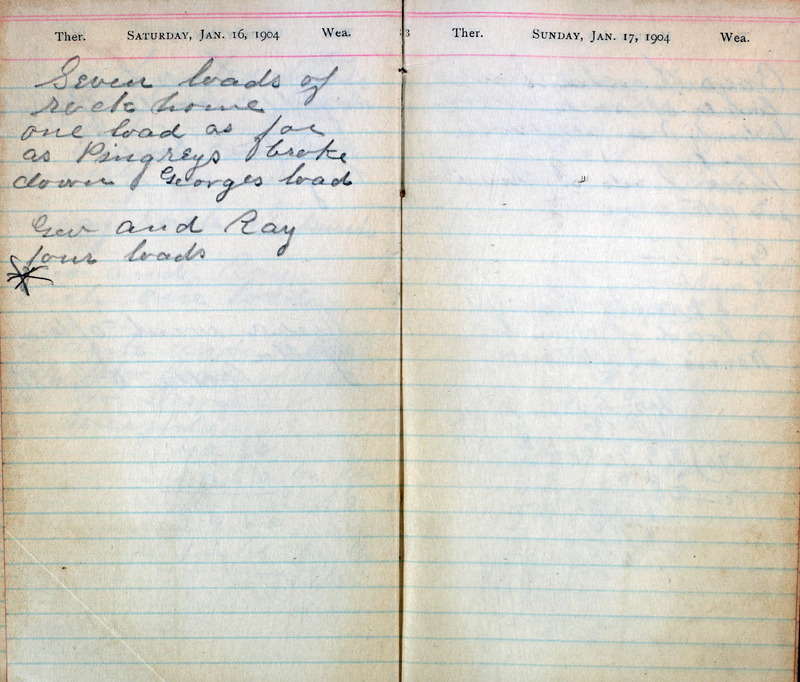 Ther. Saturday, Jan. 16, 1904 Wea.
Seven loads of
rock home
one load as far
as Pingreys broke
down Georges load
Geo and Ray
four loads
Ther. Sunday, Jan. 17, 1904 Wea.